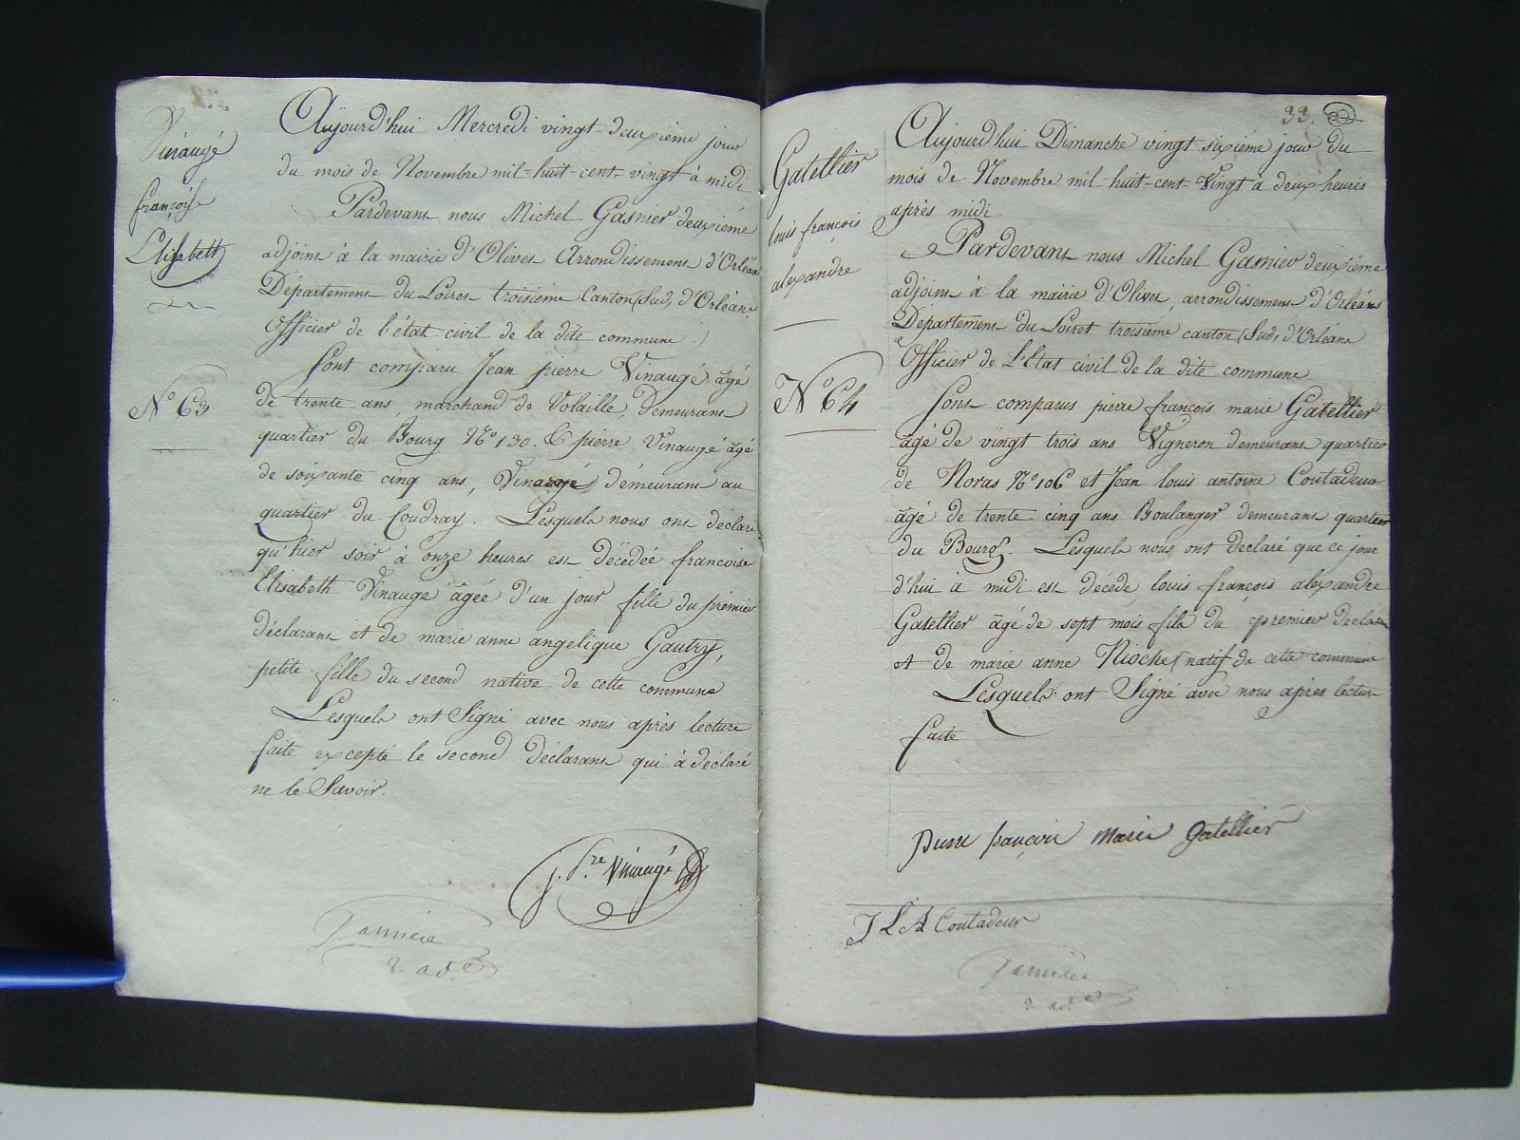 Vinaugé
françoise
Elisabeth
N° 63
Aujourd'hui Mercredi vingt-deuxième jour
du mois de Novembre mil-huit-cent-vingt à midi
Pardevant nous Michel Gasnier deuxième
adjoint à la mairie d'Olivet Arrondissement d'Orléans
Département du Loiret troisième Canton (Sud) d'Orléans
officier de l'état civil de la dite commune
Sont comparu Jean pierre Vinaugé âgé
de trente ans, marchand de Volaille, demeurant
quartier du Bourg N° 130. Et pierre Vinaugé âgé
de soixante cinq ans, demeurant au
quartier du Coudray. Lesquels nous ont déclaré
qu'hier soir à onze heures est décédée francoise
Elisabeth Vinaugé âgée d'un jour fille du premier
déclarant et de marie anne angelique Gautry,
petite fille du second native de cette commune
Lesquels ont Signé avec nous après lecture
faite excepté le second déclarant qui à déclaré
ne le Savoir.
j. Pre Vinaugé
2 adt
33
Gatellier
louis françois
alexandre
N° 64
Aujourd'hui Dimanche vingt sixième jour du
mois de Novembre mil-huit-cent-Vingt à deux heures
après midi
Pardevant nous Michel Gasnier deuxième
adjoint à la mairie d'Olivet, arrondissement d'Orléans
Département du Loiret troisième canton (Sud) d'Orléans
Officier de L'Etat civil de la dite commune
Sont comparus pierre françois marie Gatellier
âgé de vingt trois ans Vigneron demeurant quartier
de Noras N° 106 et Jean louis antoine Coutadeur
âgé de trente cinq ans Boulanger demeurant quartier
du Bourg. Lesquels nous ont déclaré que ce jour
d'hui à midi est décédé louis françois alexandre
Gatellier âgé de sept mois fils du premier
et de marie anne Rioche natif de cette commune
Lesquels ont Signé avec nous après lecture
faite
pierre françois marie gatellier
J L A Coutadeur
2 adt